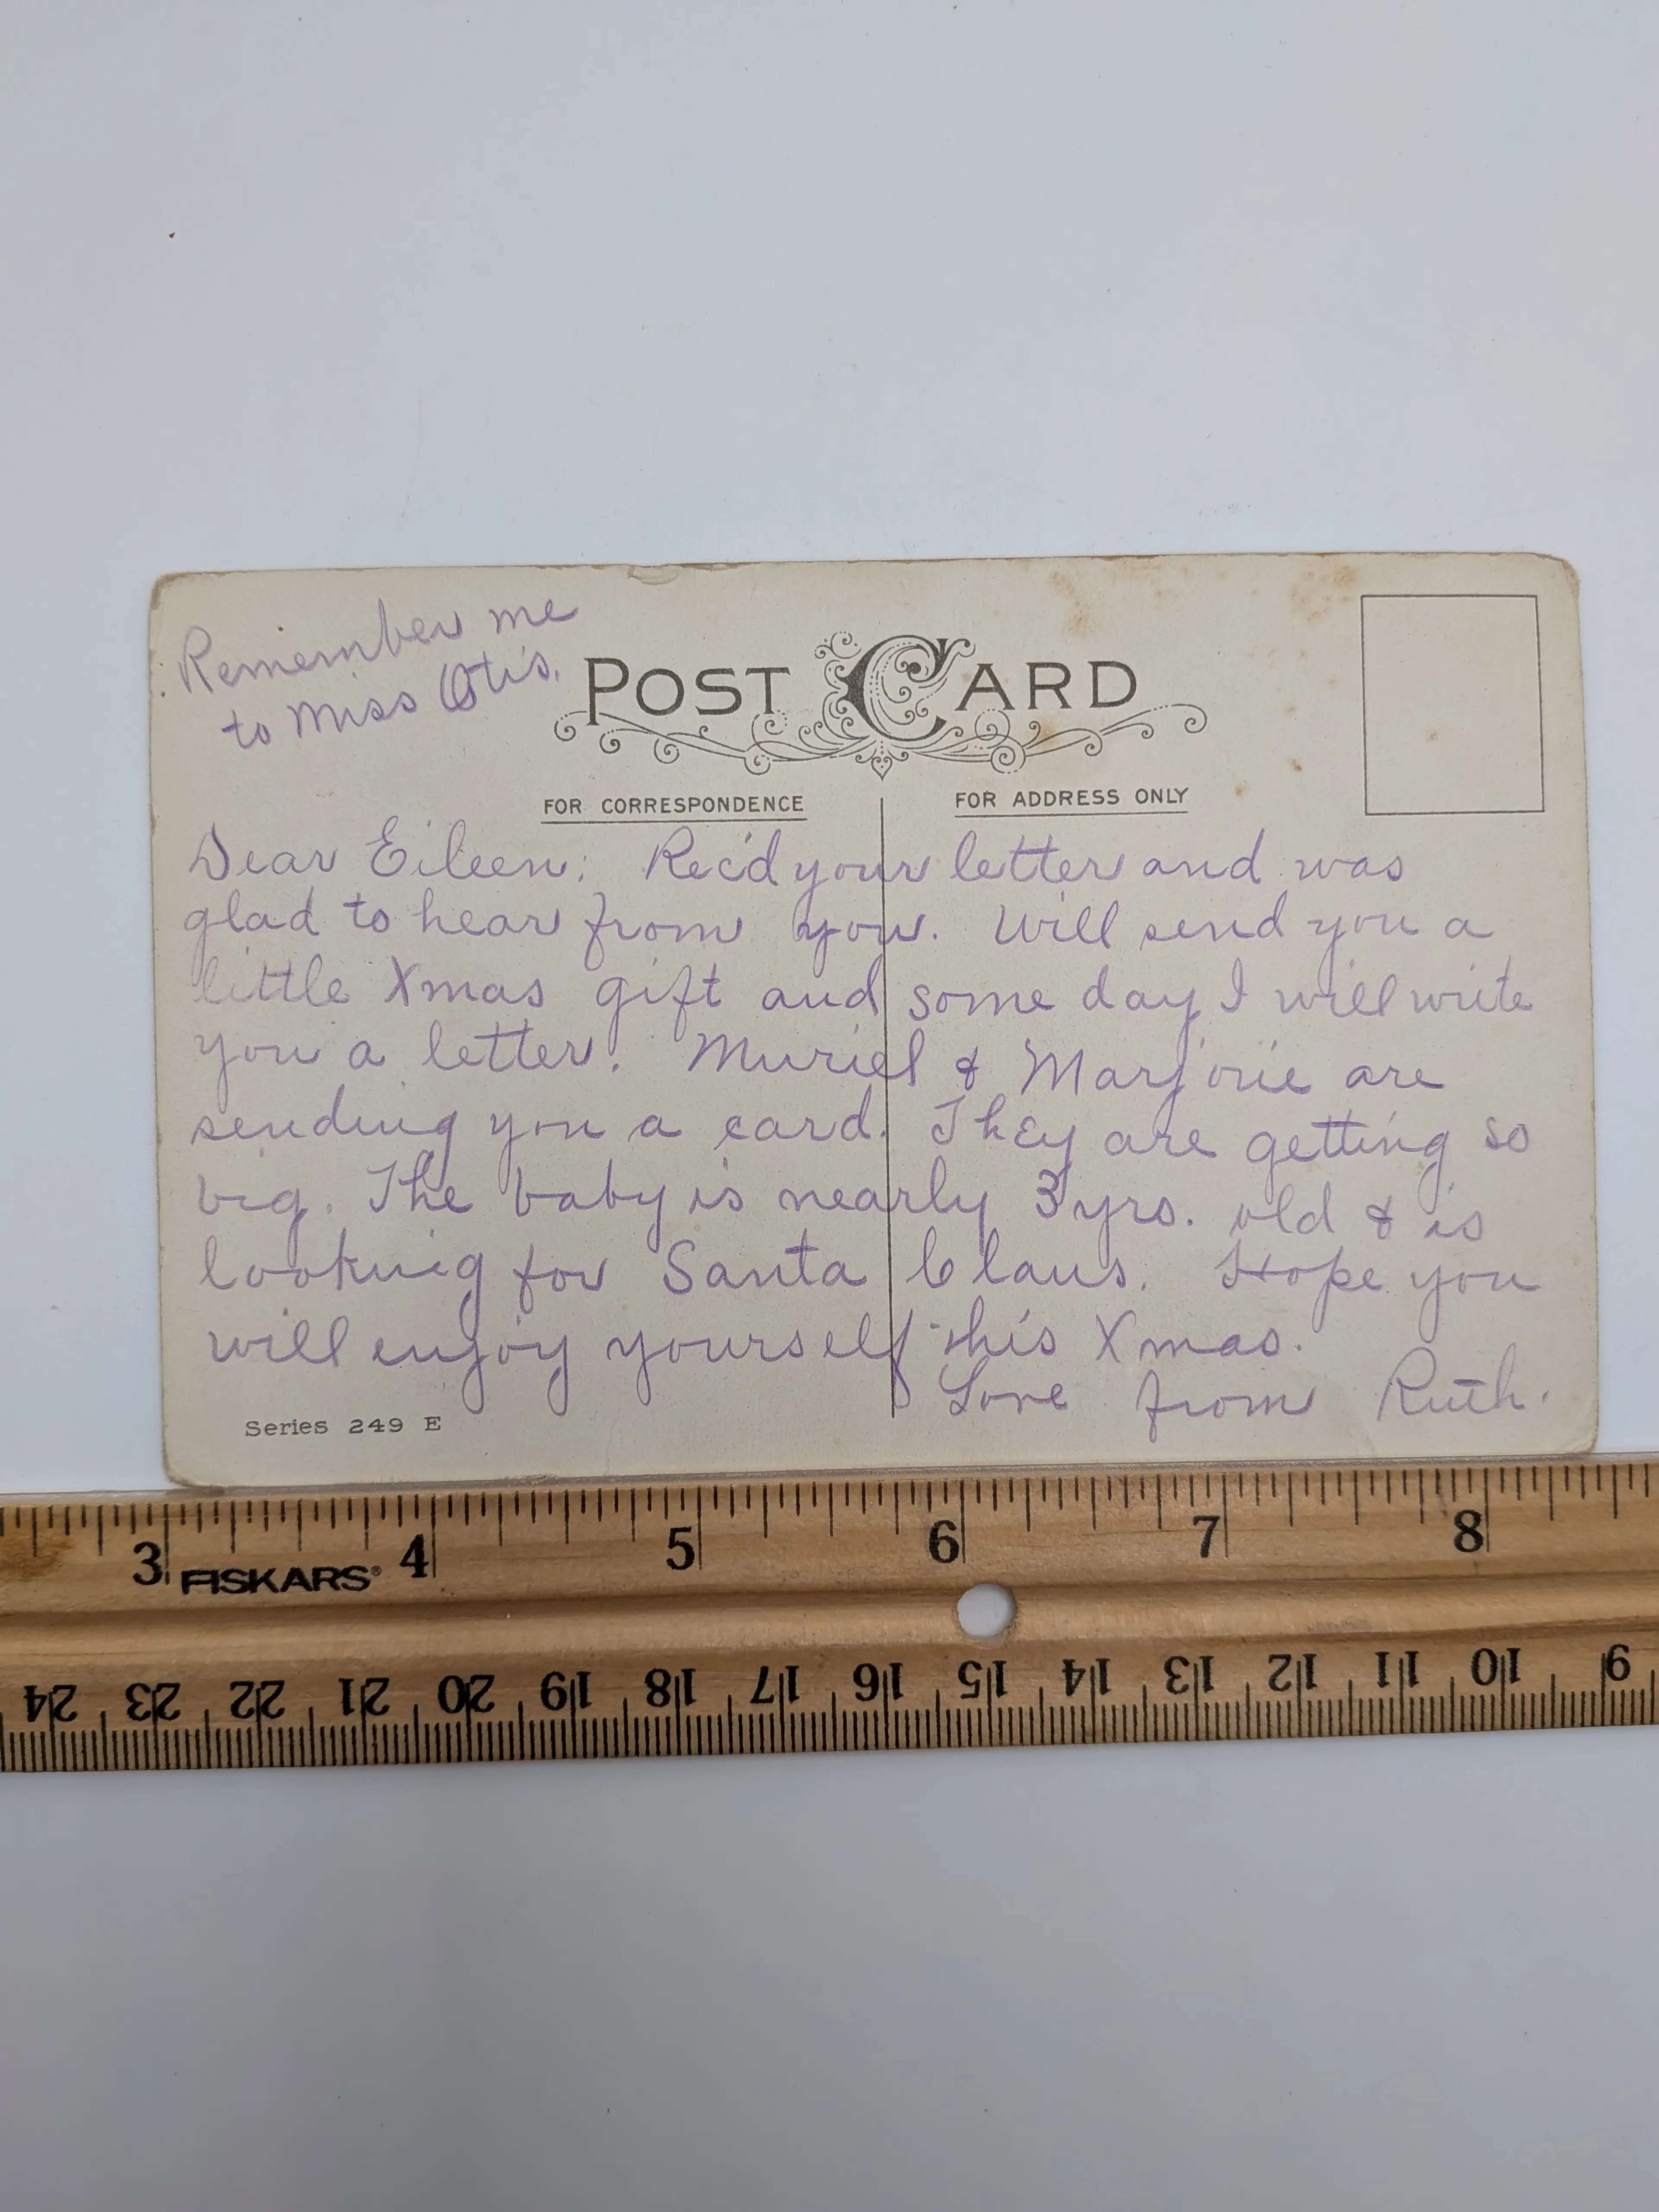 Remember me
to Miss Otis.
POST CARD
FOR CORRESPONDENCE
FOR ADDRESS ONLY
Dear Eileen: Rec'd your letter and was
glad to hear from you. Will send you a
little Xmas gift and some day I will write
you a letter. Muriel & Marjorie are
sending you a card. They are getting so
big. The baby is nearly 3 yrs. old & is
looking for Santa Claus. Hope you
will enjoy yourself this Xmas.
Love from Ruth.
Series 249 E
3 4 5 6 7 8
FISKARS®
24 23 22 21 20 19 18 17 16 15 14 13 12 11 10 9